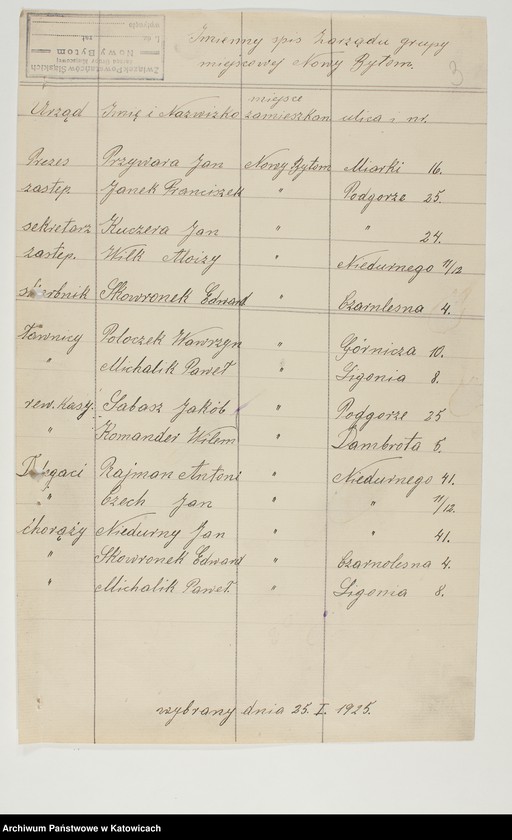 Związek Powstańców Śląskich
Nowy Bytom
Imienny spis Zarządu grupy
miejscowej Nowy Bytom.
3
Urząd Imię i Nazwisko miejsce zamieszkan ulica i nr.
Prezes Przywara Jan Nowy Bytom Miarki 16.
zastęp Janek Franciszek " Podgorze 25.
sekretarz Kuczera Jan " " 24.
zastęp. Wilk Aloizy " Niedurnego 11/12
skarbnik Skowronek Edward " Czarnlesna 4.
Ławnicy Poloczek Wawrzyn " Górnicza 10.
" Michalik Paweł " Ligonia 8.
rew. Kasy. Sabasz Jakób " Podgorze 25
" Komander Wilem " Dambrota 6.
Delegaci Rajman Antoni " Niedurnego 41.
" Czech Jan " " 11/12.
chorąży Niedurny Jan " " 41.
" Skowronek Edward " Czarnolesna 4.
" Michalik Paweł. " Ligonia 8.
wybrany dnia 25. I. 1925.
Archiwum Państwowe w Katowicach